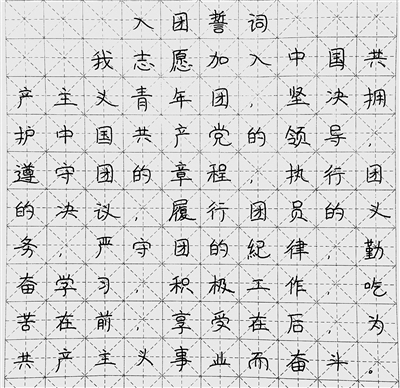 入团誓词
我志愿加入中国共
产主义青年团，坚决拥
护中国共产党的领导，
遵守团的章程，执行团
的决议，履行团员的义
务，严守团的纪律，勤
奋学习，积极工作，吃
苦在前，享受在后，为
共产主义事业而奋斗。